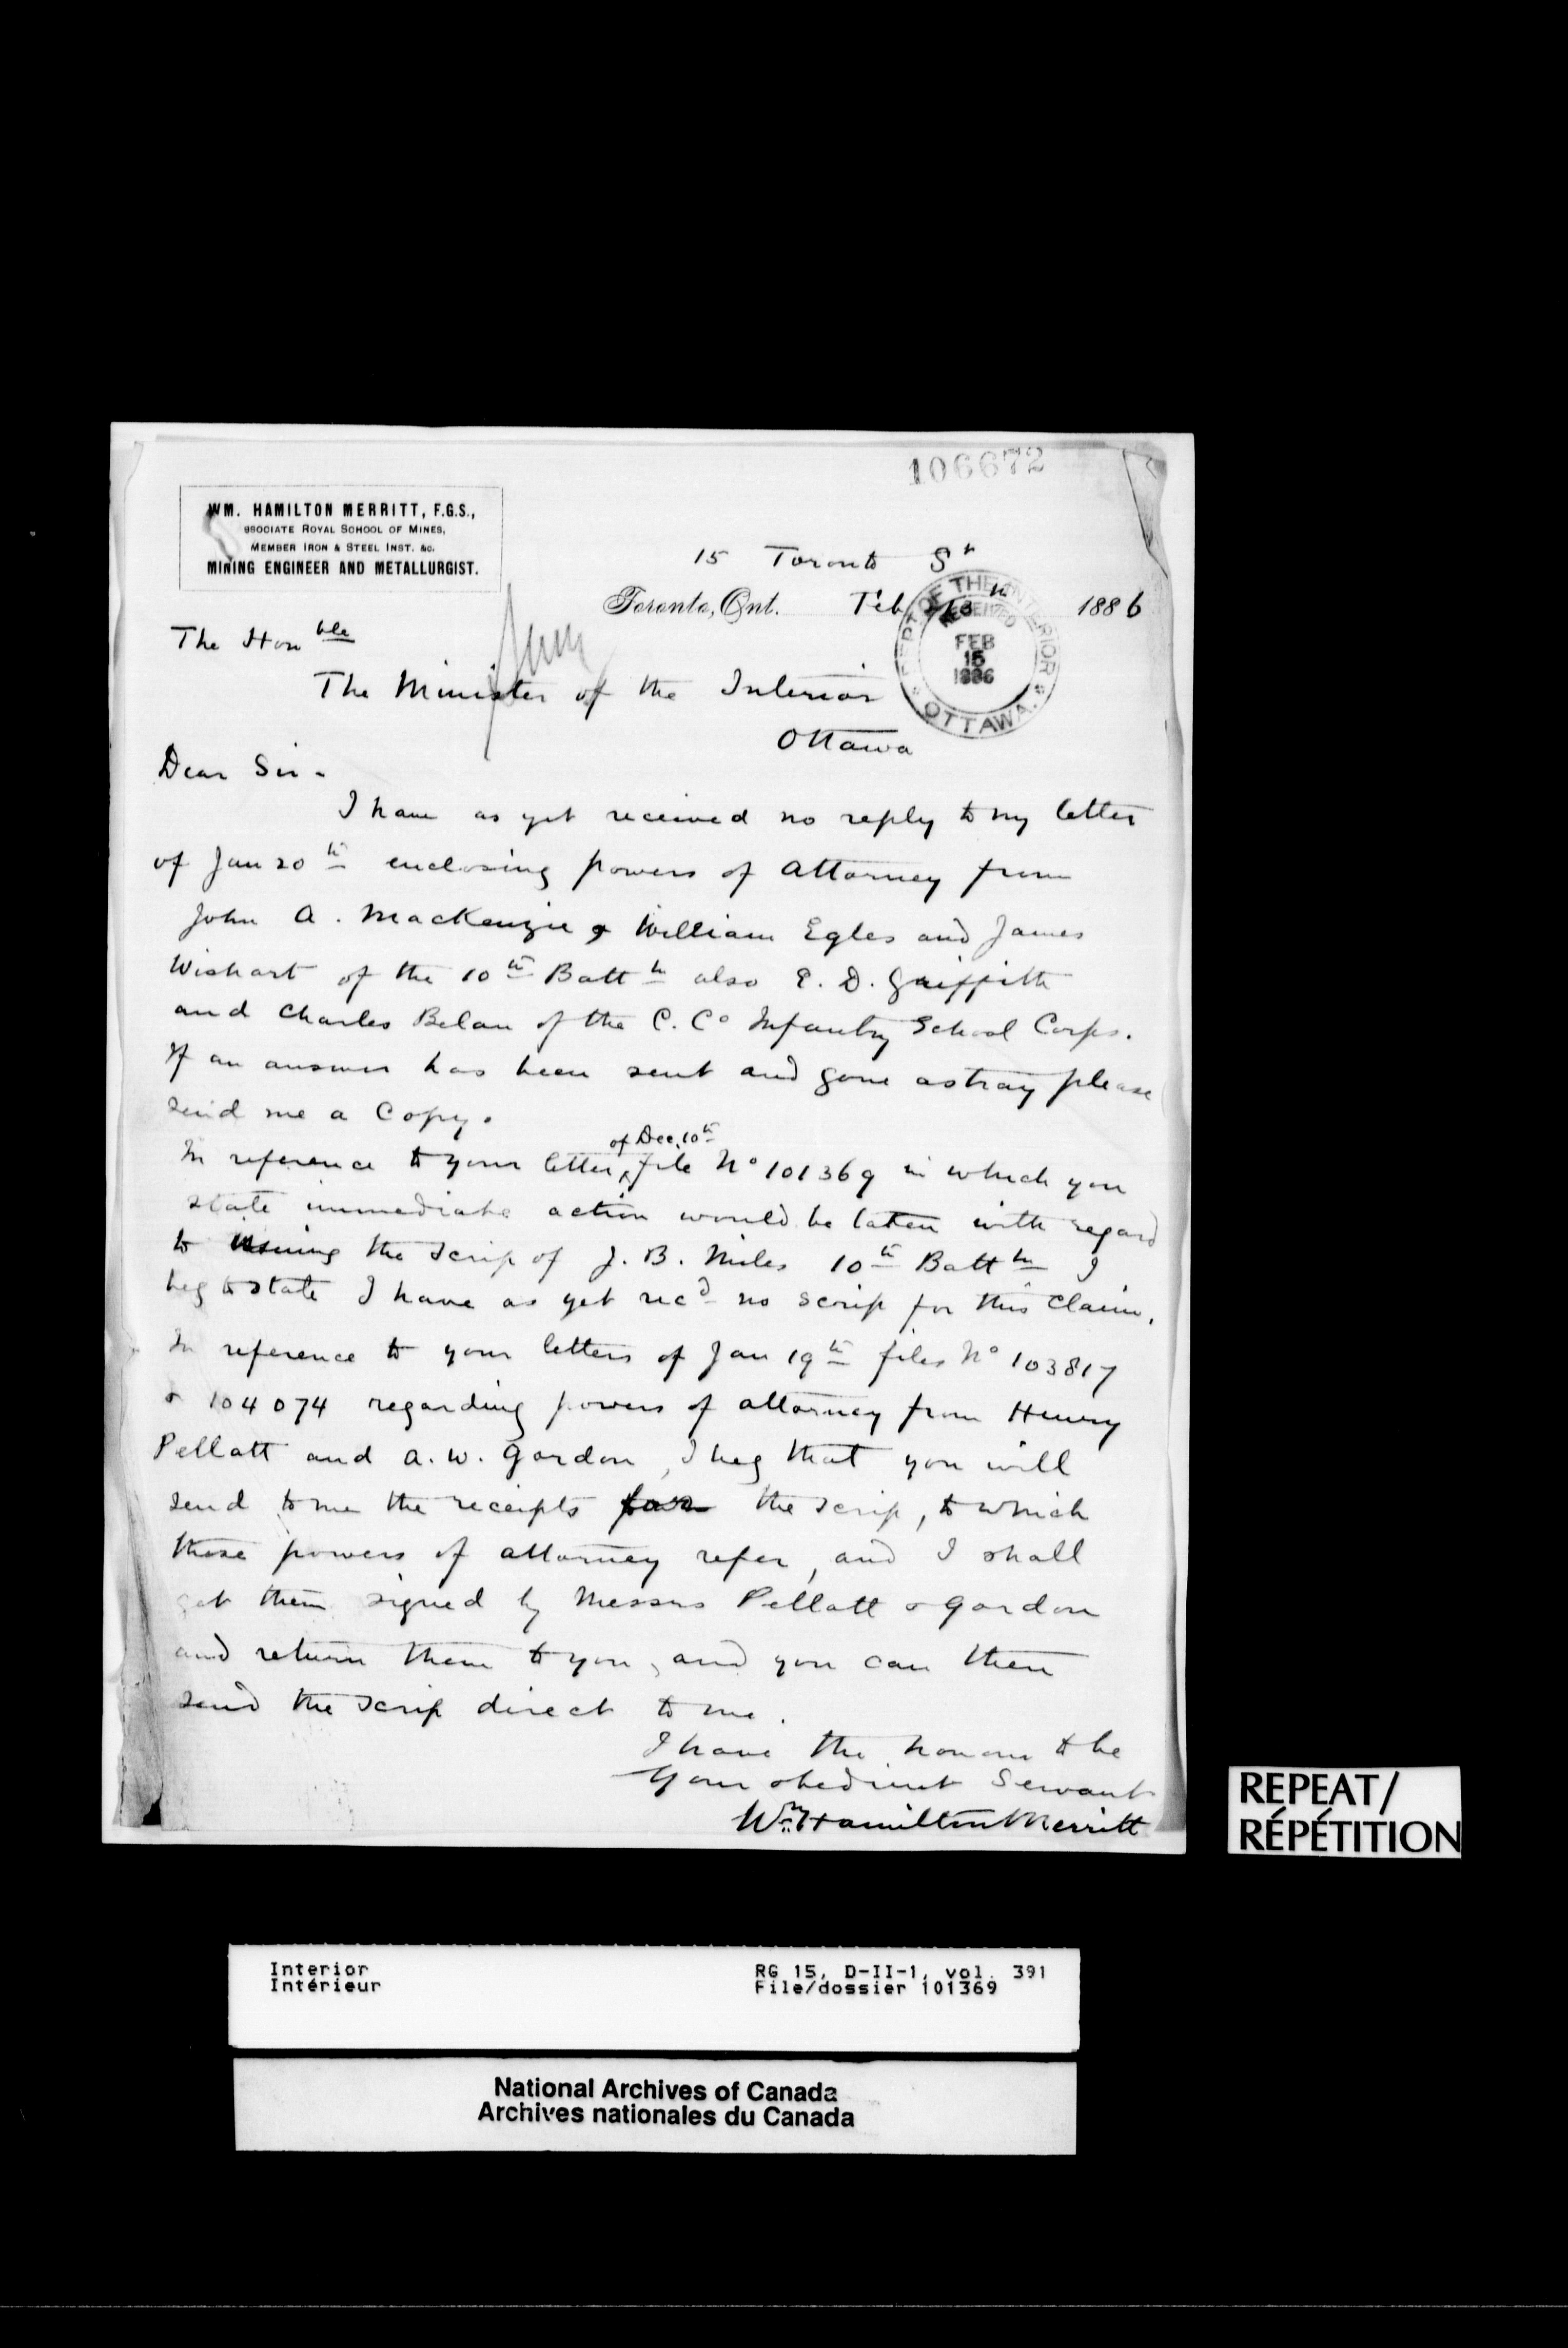 106672
WM. HAMILTON MERRITT, F.G.S.,
SSOCIATE ROYAL SCHOOL OF MINES,
MEMBER IRON & STEEL INST. &c.
MINING ENGINEER AND METALLURGIST.
15 Toronto St
Toronto, Ont. Feb 13th 1886
DEPT OF THE INTERIOR
RECEIVED
FEB
15
1886
OTTAWA.
The Honble
The Minister of the Interior
Ottawa
Dear Sir -
I have as yet received no reply to my letter
of Jan 20th enclosing powers of attorney from
John A. MacKenzie & William Egles and James
Wishart of the 10th Battn also E. D. Griffith
and Charles Belau of the C. Co Infantry School Corps.
If an answer has been sent and gone astray please
send me a Copy.
of Dec. 10th
In reference to your letter file No 101369 in which you
state immediate action would be taken with regard
to issuing the scrip of J. B. Miles 10th Battn I
beg to state I have as yet recd no scrip for this claim.
In reference to your letters of Jan 19th files No 103817
& 104074 regarding powers of attorney from Henry
Pellatt and A. W. Gordon, I beg that you will
send to me the receipts for the scrip, to which
these powers of attorney refer, and I shall
get them signed by Messrs Pellatt & Gordon
and return them to you, and you can then
send the scrip direct to me.
I have the honour to be
Your obedient Servant
Wm Hamilton Merritt
REPEAT/
RÉPÉTITION
Interior RG 15, D-II-1, vol. 391
Intérieur File/dossier 101369
National Archives of Canada
Archives nationales du Canada